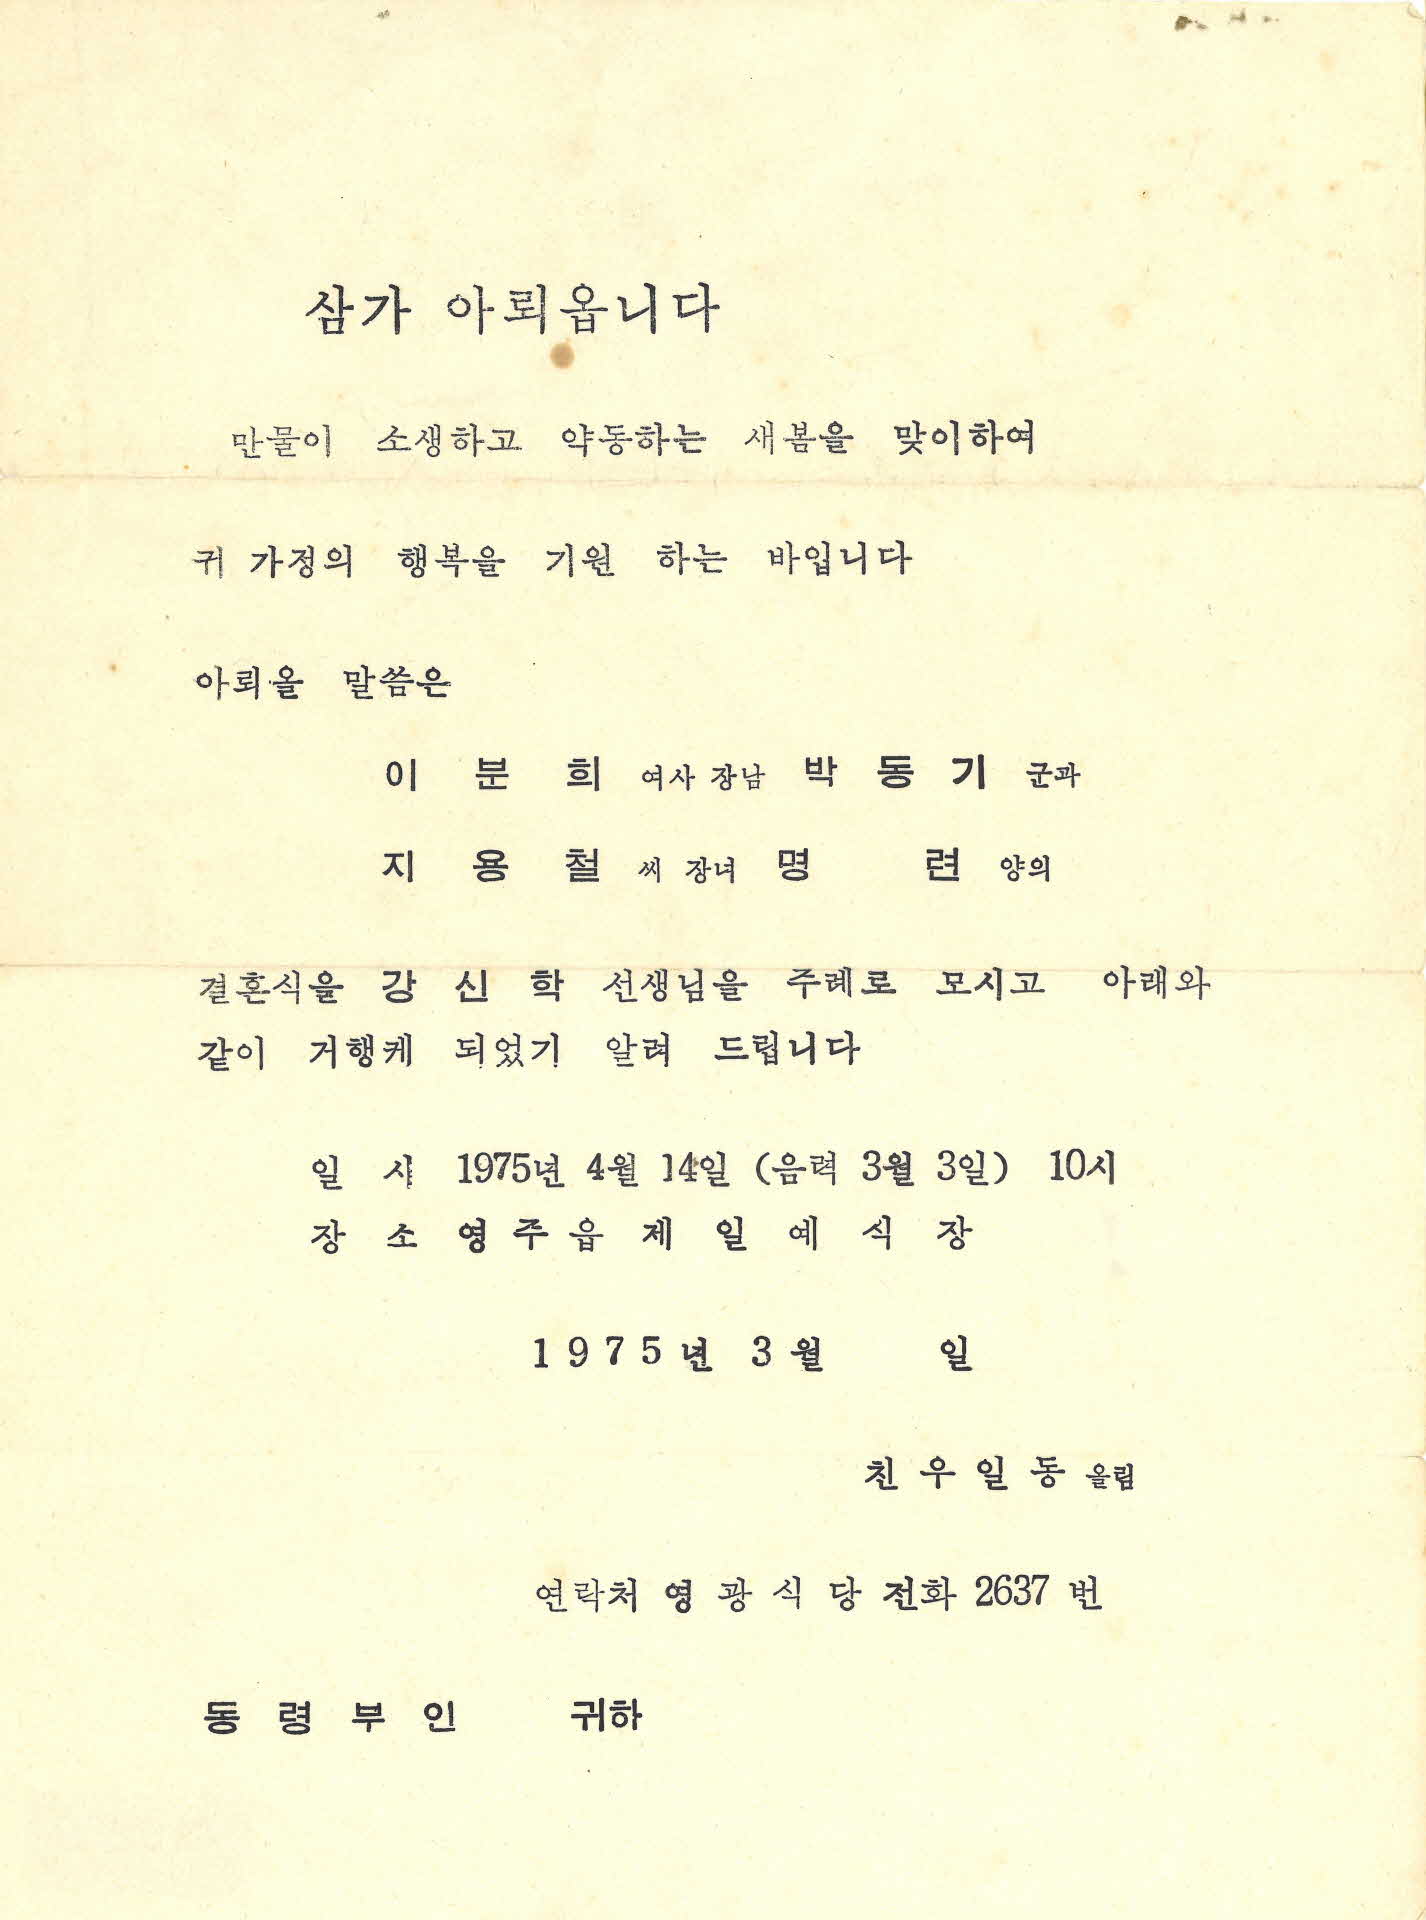 삼가 아뢰옵니다
만물이 소생하고 약동하는 새봄을 맞이하여
귀 가정의 행복을 기원 하는 바입니다
아뢰올 말씀은
이 분 희 여사 장남 박 동 기 군과
지 용 철 씨 장녀 명 련 양의
결혼식을 강 신 학 선생님을 주례로 모시고 아래와
같이 거행케 되었기 알려 드립니다
일 시 1975년 4월 14일 (음력 3월 3일) 10시
장 소 영주읍 제 일 예 식 장
1975년 3월 일
친우일동 올림
연락처 영 광 식 당 전화 2637 번
동 령 부 인 귀하